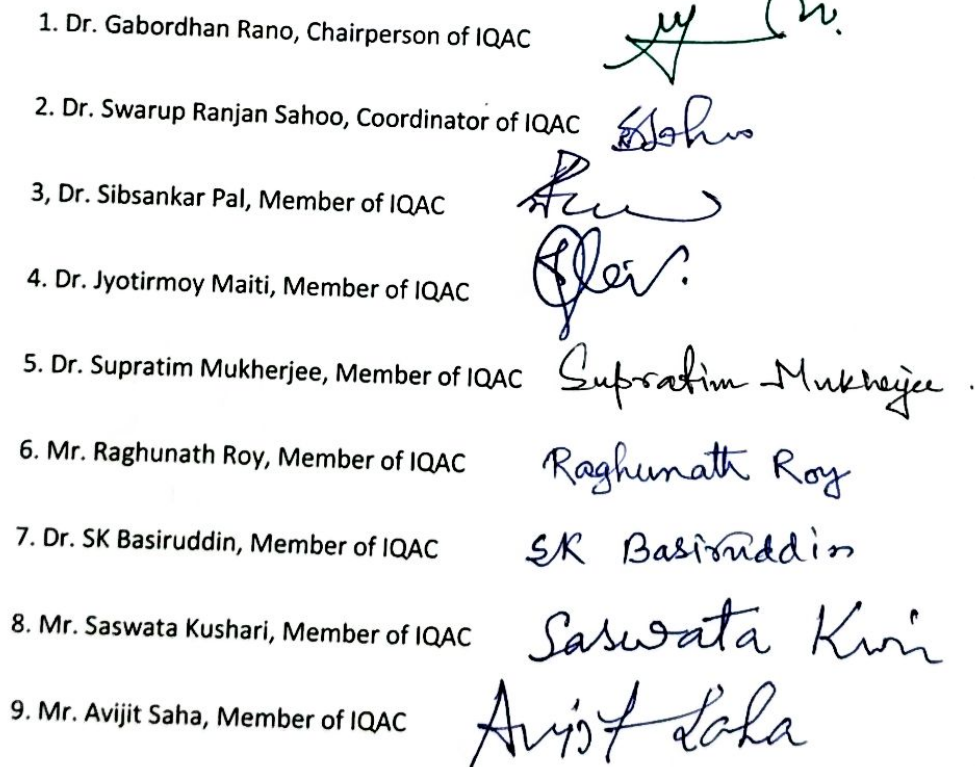 1. Dr. Gabordhan Rano, Chairperson of IQAC
2. Dr. Swarup Ranjan Sahoo, Coordinator of IQAC
3, Dr. Sibsankar Pal, Member of IQAC
4. Dr. Jyotirmoy Maiti, Member of IQAC
5. Dr. Supratim Mukherjee, Member of IQAC Supratim Mukherjee.
6. Mr. Raghunath Roy, Member of IQAC Raghunath Roy
7. Dr. SK Basiruddin, Member of IQAC SK Basiruddin
8. Mr. Saswata Kushari, Member of IQAC Saswata
9. Mr. Avijit Saha, Member of IQAC Avijit Saha